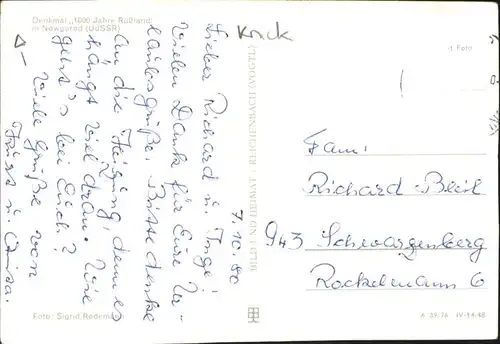 Denkmal „1000 Jahre Rußland“
in Nowgorod (UdSSR)
Krick
7.10.80
Lieber Richard u. Inge!
Vielen Dank für Eure Ur-
laubsgrüße. Bitte denke
an die Heizung, denn es
hängt viel dran. Wie
geht's bei Euch?
Viele Grüße von
Foto: Sigrid Redemann
BILD UND HEIMAT · REICHENBACH (VOGTL)
1 Foto
Fam.
Richard
943 Schwarzenberg
6
A 59/76 IV-14-48